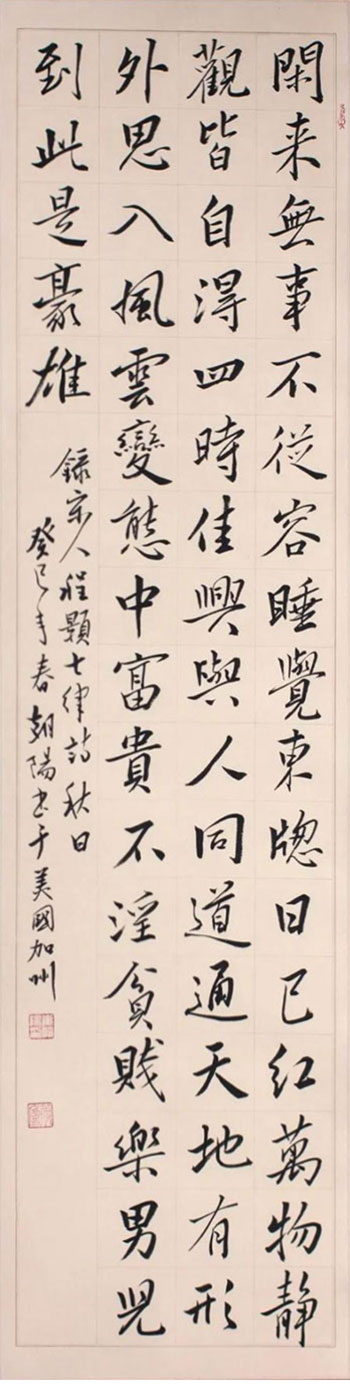 閑来無事不從容睡覺東牕日已紅萬物静
觀皆自得四時佳興與人同道通天地有形
外思入風雲變態中富貴不淫貧賤樂男児
到此是豪雄
録宋人程顥七律詩秋日
癸巳年春朝陽书于美國加州